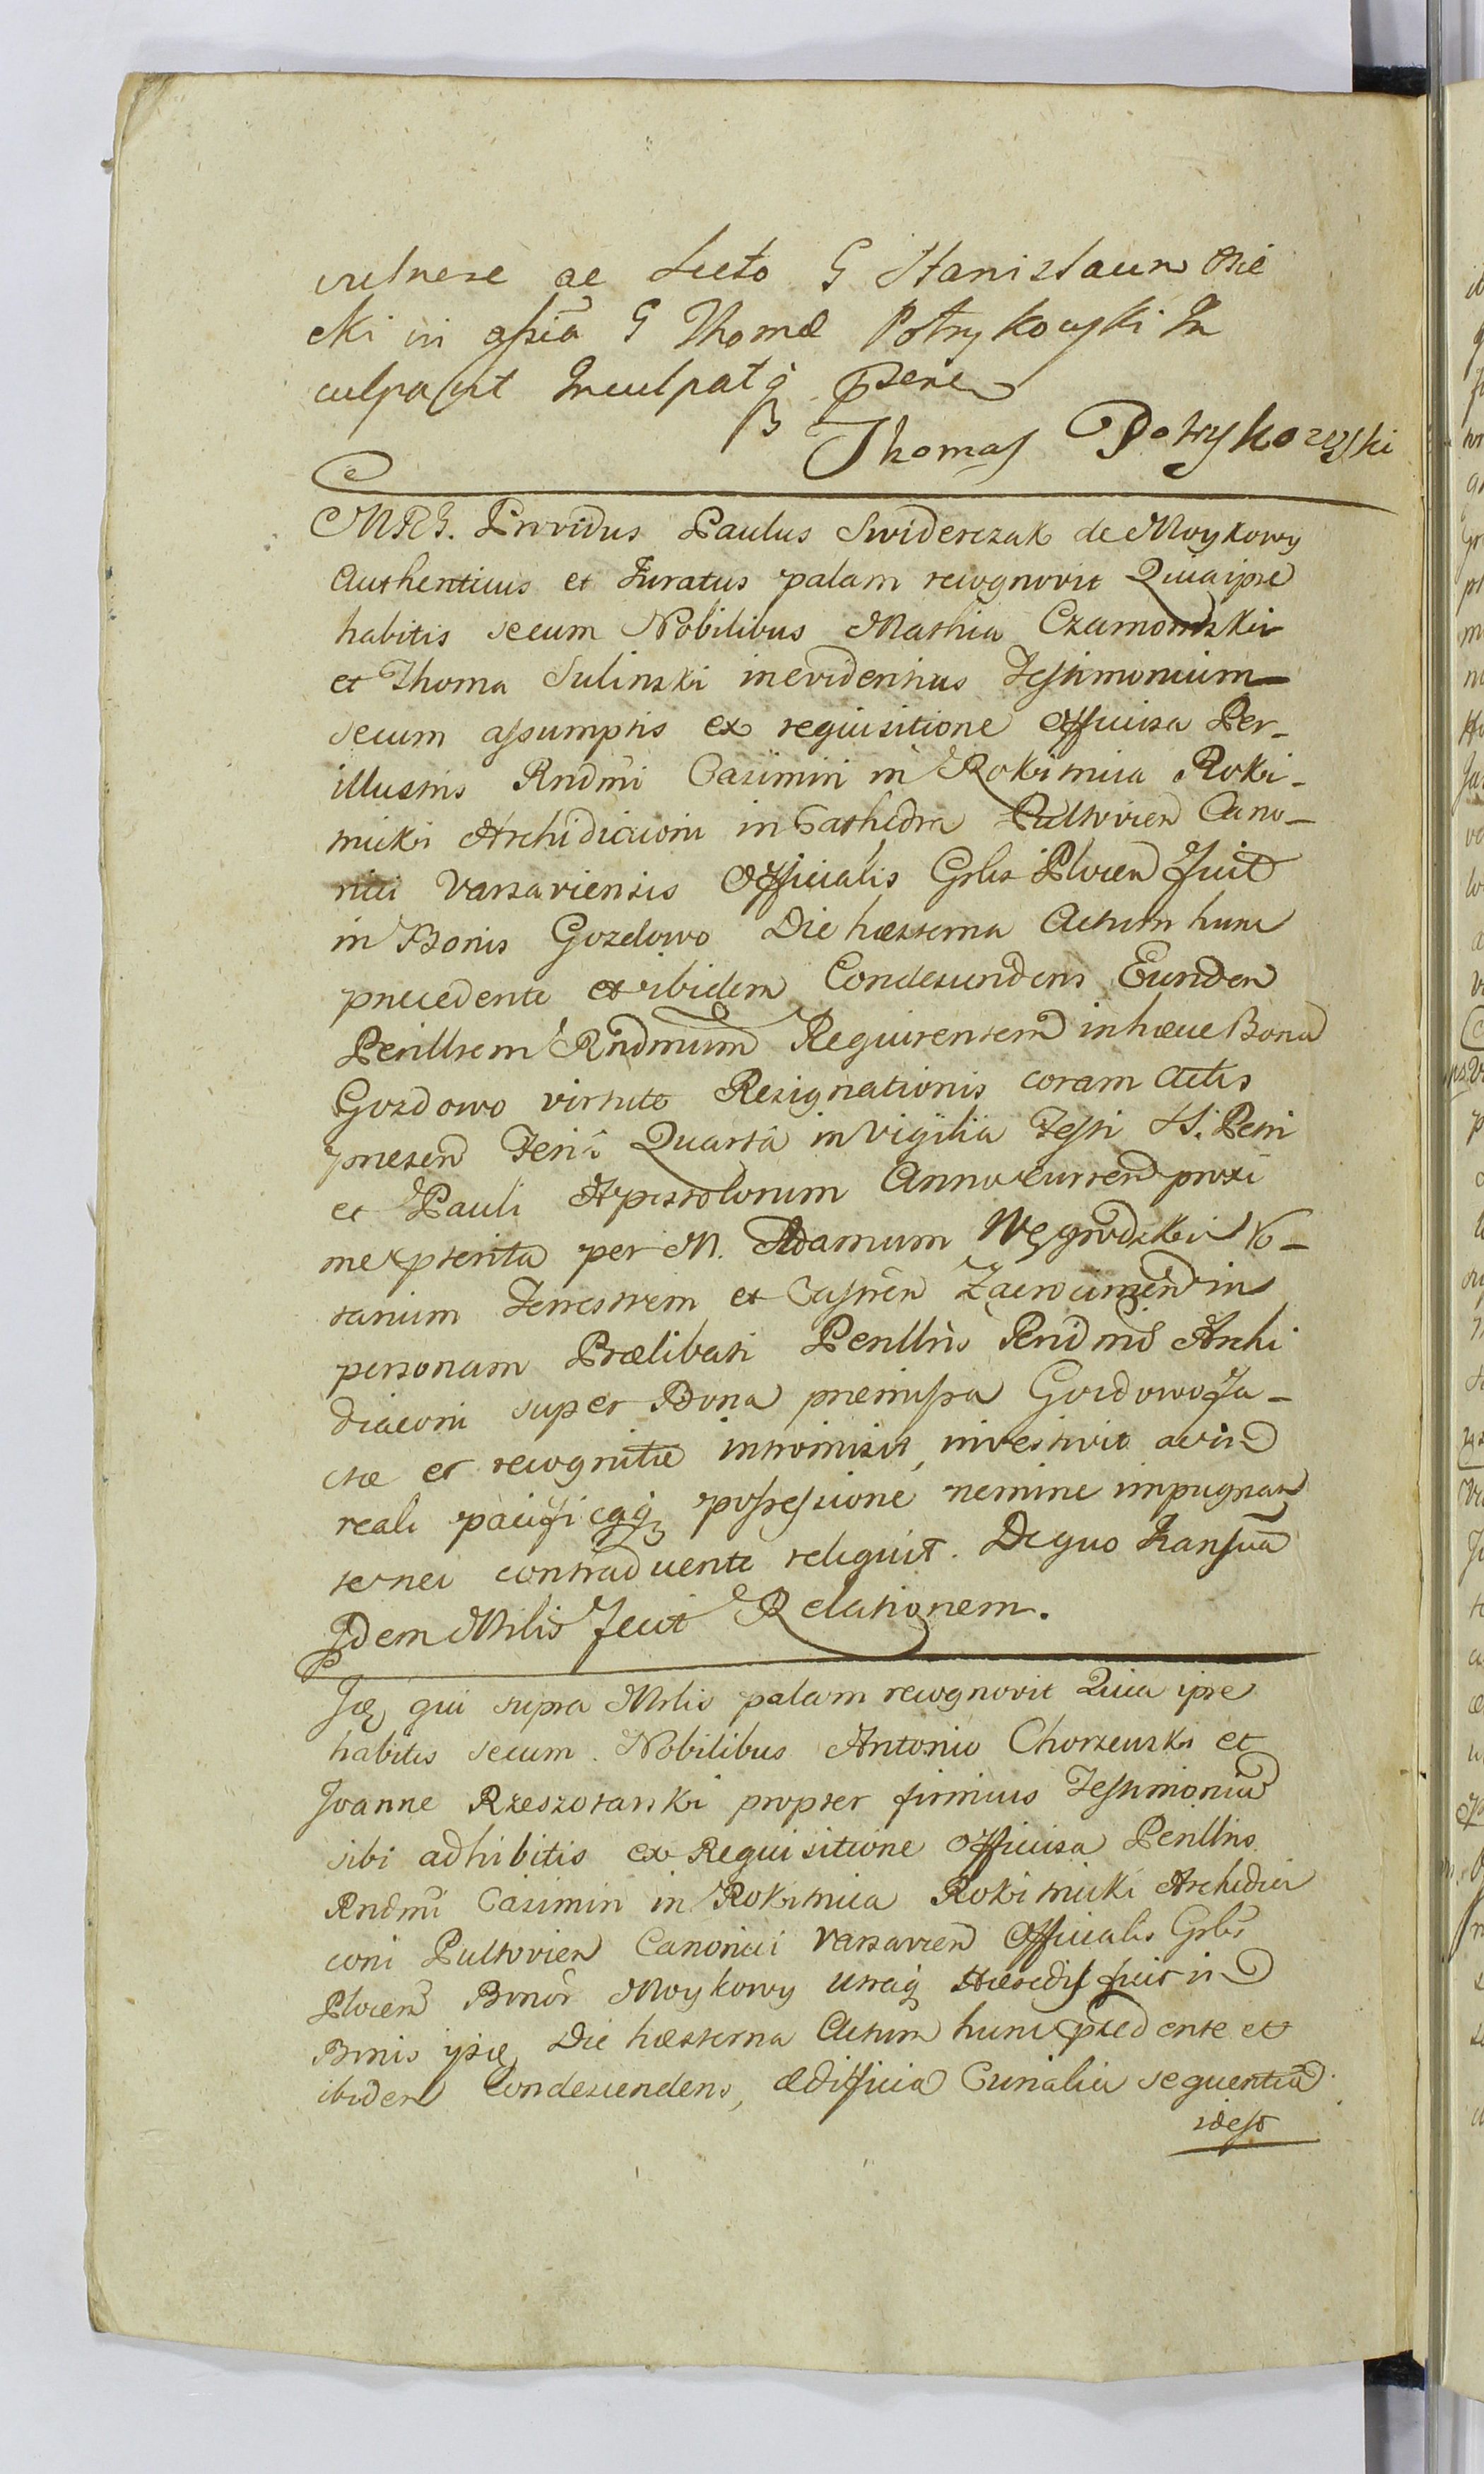 vulnere ac Lucto G Stanislaum Osie
cki in assia G Thomæ Potrykowski In
culpa(ut Inculpatq pene
Thomas Potrykowski
MRG. Providus Paulus Swiderczak de Moykowy
Authenticus et Juratus palam recognovit Quia ipse
habitis secum Nobilibus Mathia Czamonski
et Thoma Sulinski in evidentius Testimonium
secum assumptis ex requisitione officiosa Per-
illustris Rndmi Casimiri in Rokitnica Roki-
tnicki Archidiaconi in Cathedra Pultovien Cano-
nici Varsaviensis Officialis Grlis Plocen fuit
in Bonis Gozdowo Die hæsterna Actum hunc
precedente et ibidem Condescendens Eunden
Perillrem Rndmum Requirentem in hæce Bona
Gozdowo virtute Resignationis coram Actis
presen Feriâ Quartâ in Vigilia Festi SS. Petri
et Pauli Apostolorum Anno curren proxi
me pterita per M. Adamum Węgrodzki No-
tarium Terrestrem et Castren Zacrocimen in
personam Prælibati Perillris Rndmi Archi
diaconi super Bona premissa Gozdowo fa-
ctæ et recognitæ intromisit, investivit acin
reali pacificaq possessione nemine impugnan
te nec contradicente reliquit. De quo
Idem Mnlis fecit Relationem.
Idę qui supra Mnlis palam recognovit Quia ipse
habitis secum Nobilibus Antonio Chorzewski et
Joanne Rzeszotarski propter firmius Testimoniu
sibi adhibitis ex Requisitione officiosa Perillris
Rndmi Casimiri in Rokitnica Rokitnicki Archidia
coni Pultovien Canonici Varsavien Officialis Grlis
Plocen Bonor Moykowy utraq Hæredis fuit in
Bonis ysię Die hæsterna Actum hunc pcedente et
ibidem condescendens, ædificia Curialia sequentia
idest